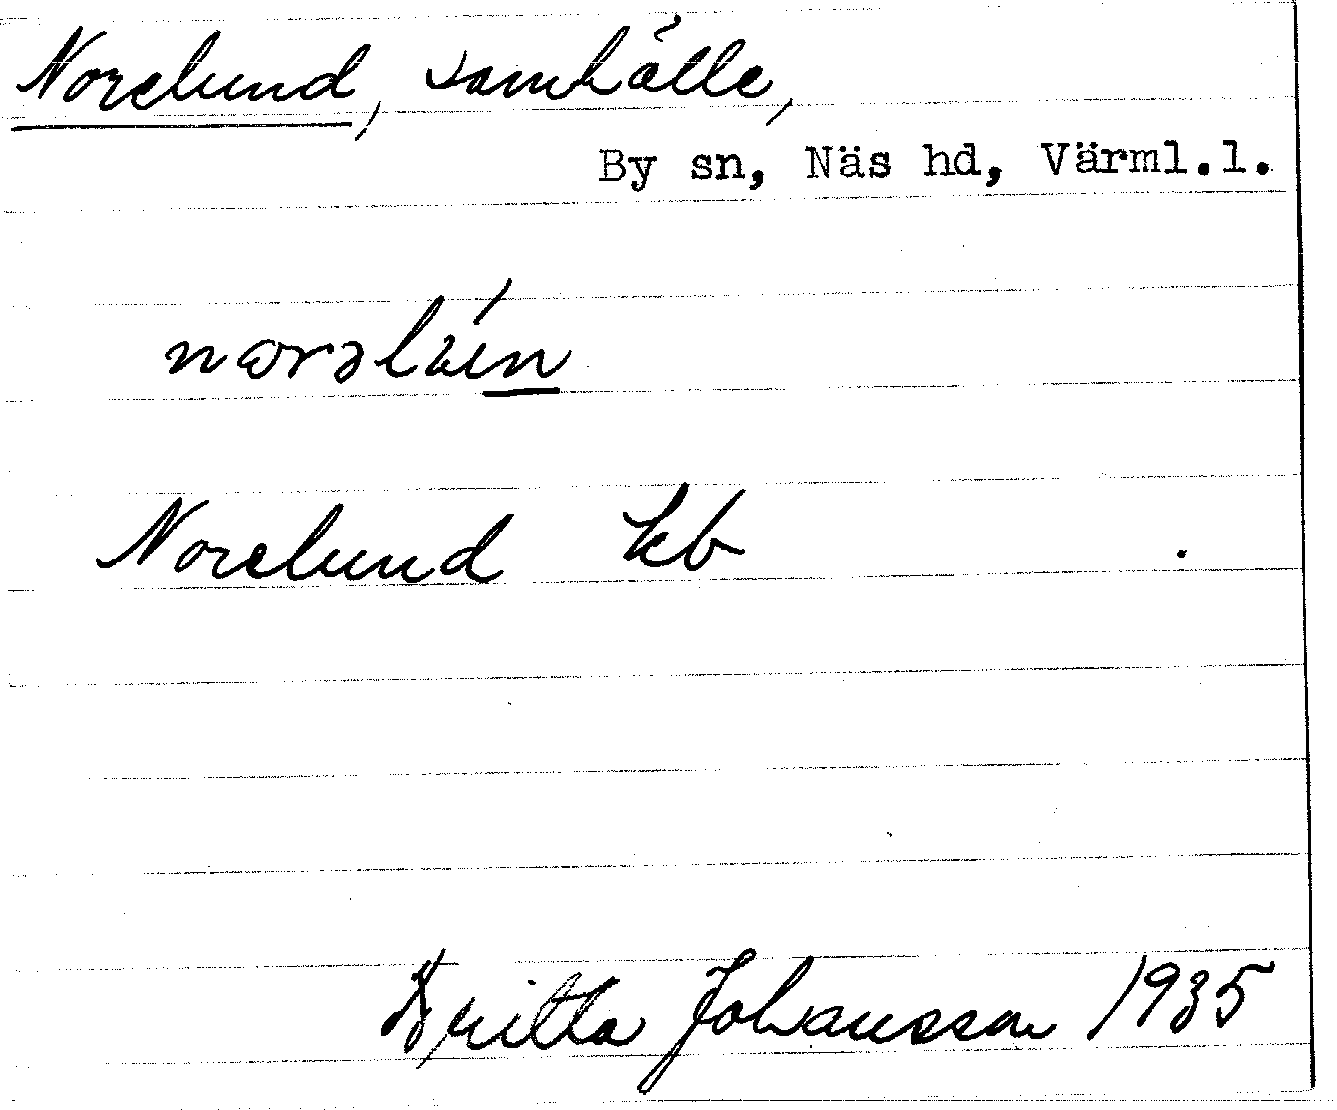 Norelund, samhälle,
By sn, Näs hd, Värml.l.
Norelund kb
Britta Johansson 1935